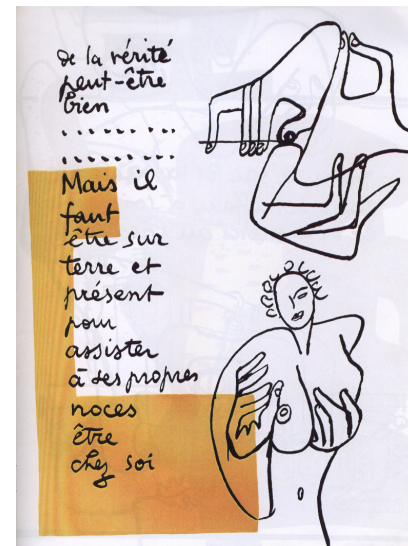 de la vérité
peut-être
bien
.........
.........
Mais il
faut
être sur
terre et
présent
pour
assister
à ses propres
noces
être
chez soi